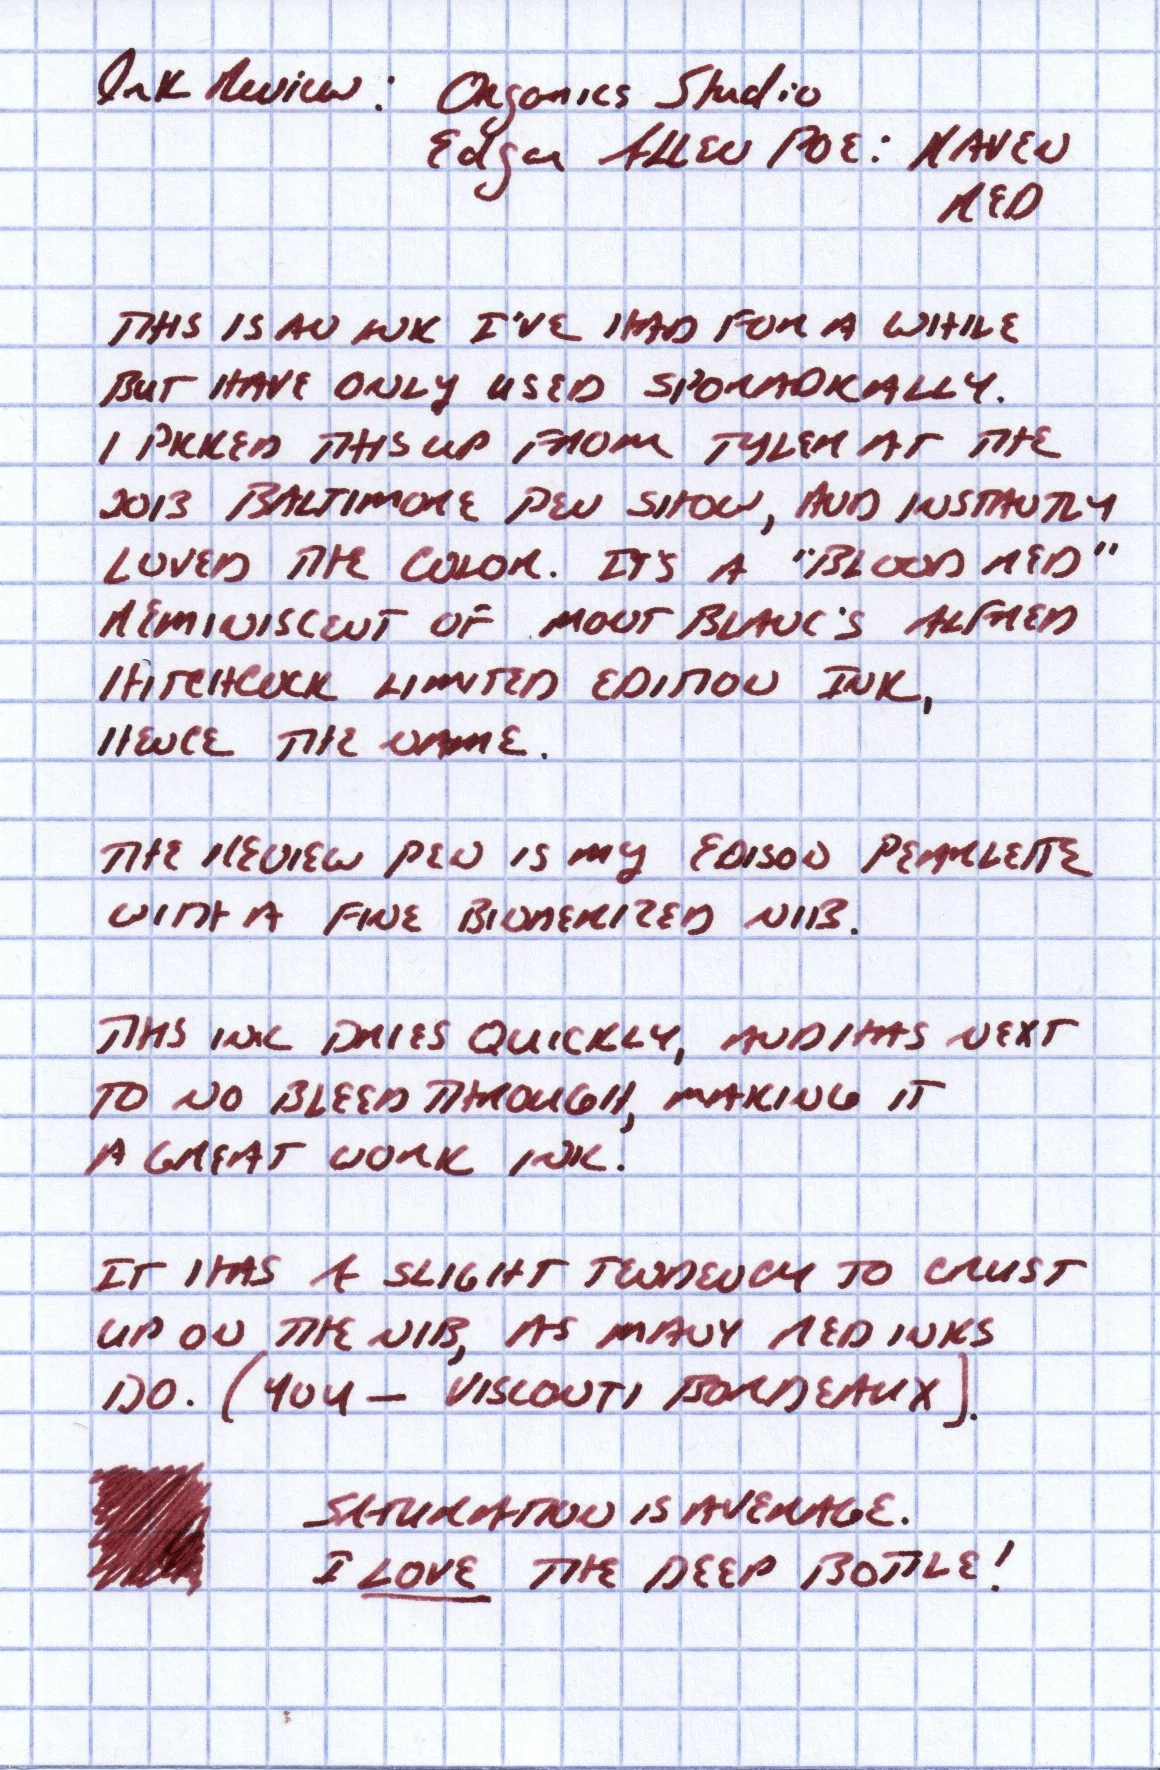 Ink Review: Organics Studio
Edgar Allen Poe: Raven
Red
This is an ink I've had for a while
but have only used sporadically.
I picked this up from Tyler at the
2013 Baltimore Pen Show, and instantly
loved the color. It's a "Blood Red"
reminiscent of Mont Blanc's Alfred
Hitchcock Limited Edition Ink,
hence the name.
The review pen is my Edison Pearlette
with a fine binderized nib.
This ink dries quickly, and has next
to no bleed through, making it
a great work ink.
It has a slight tendency to crust
up on the nib, as many red inks
do. (You — Visconti Bordeaux).
Saturation is average.
I love the deep bottle!